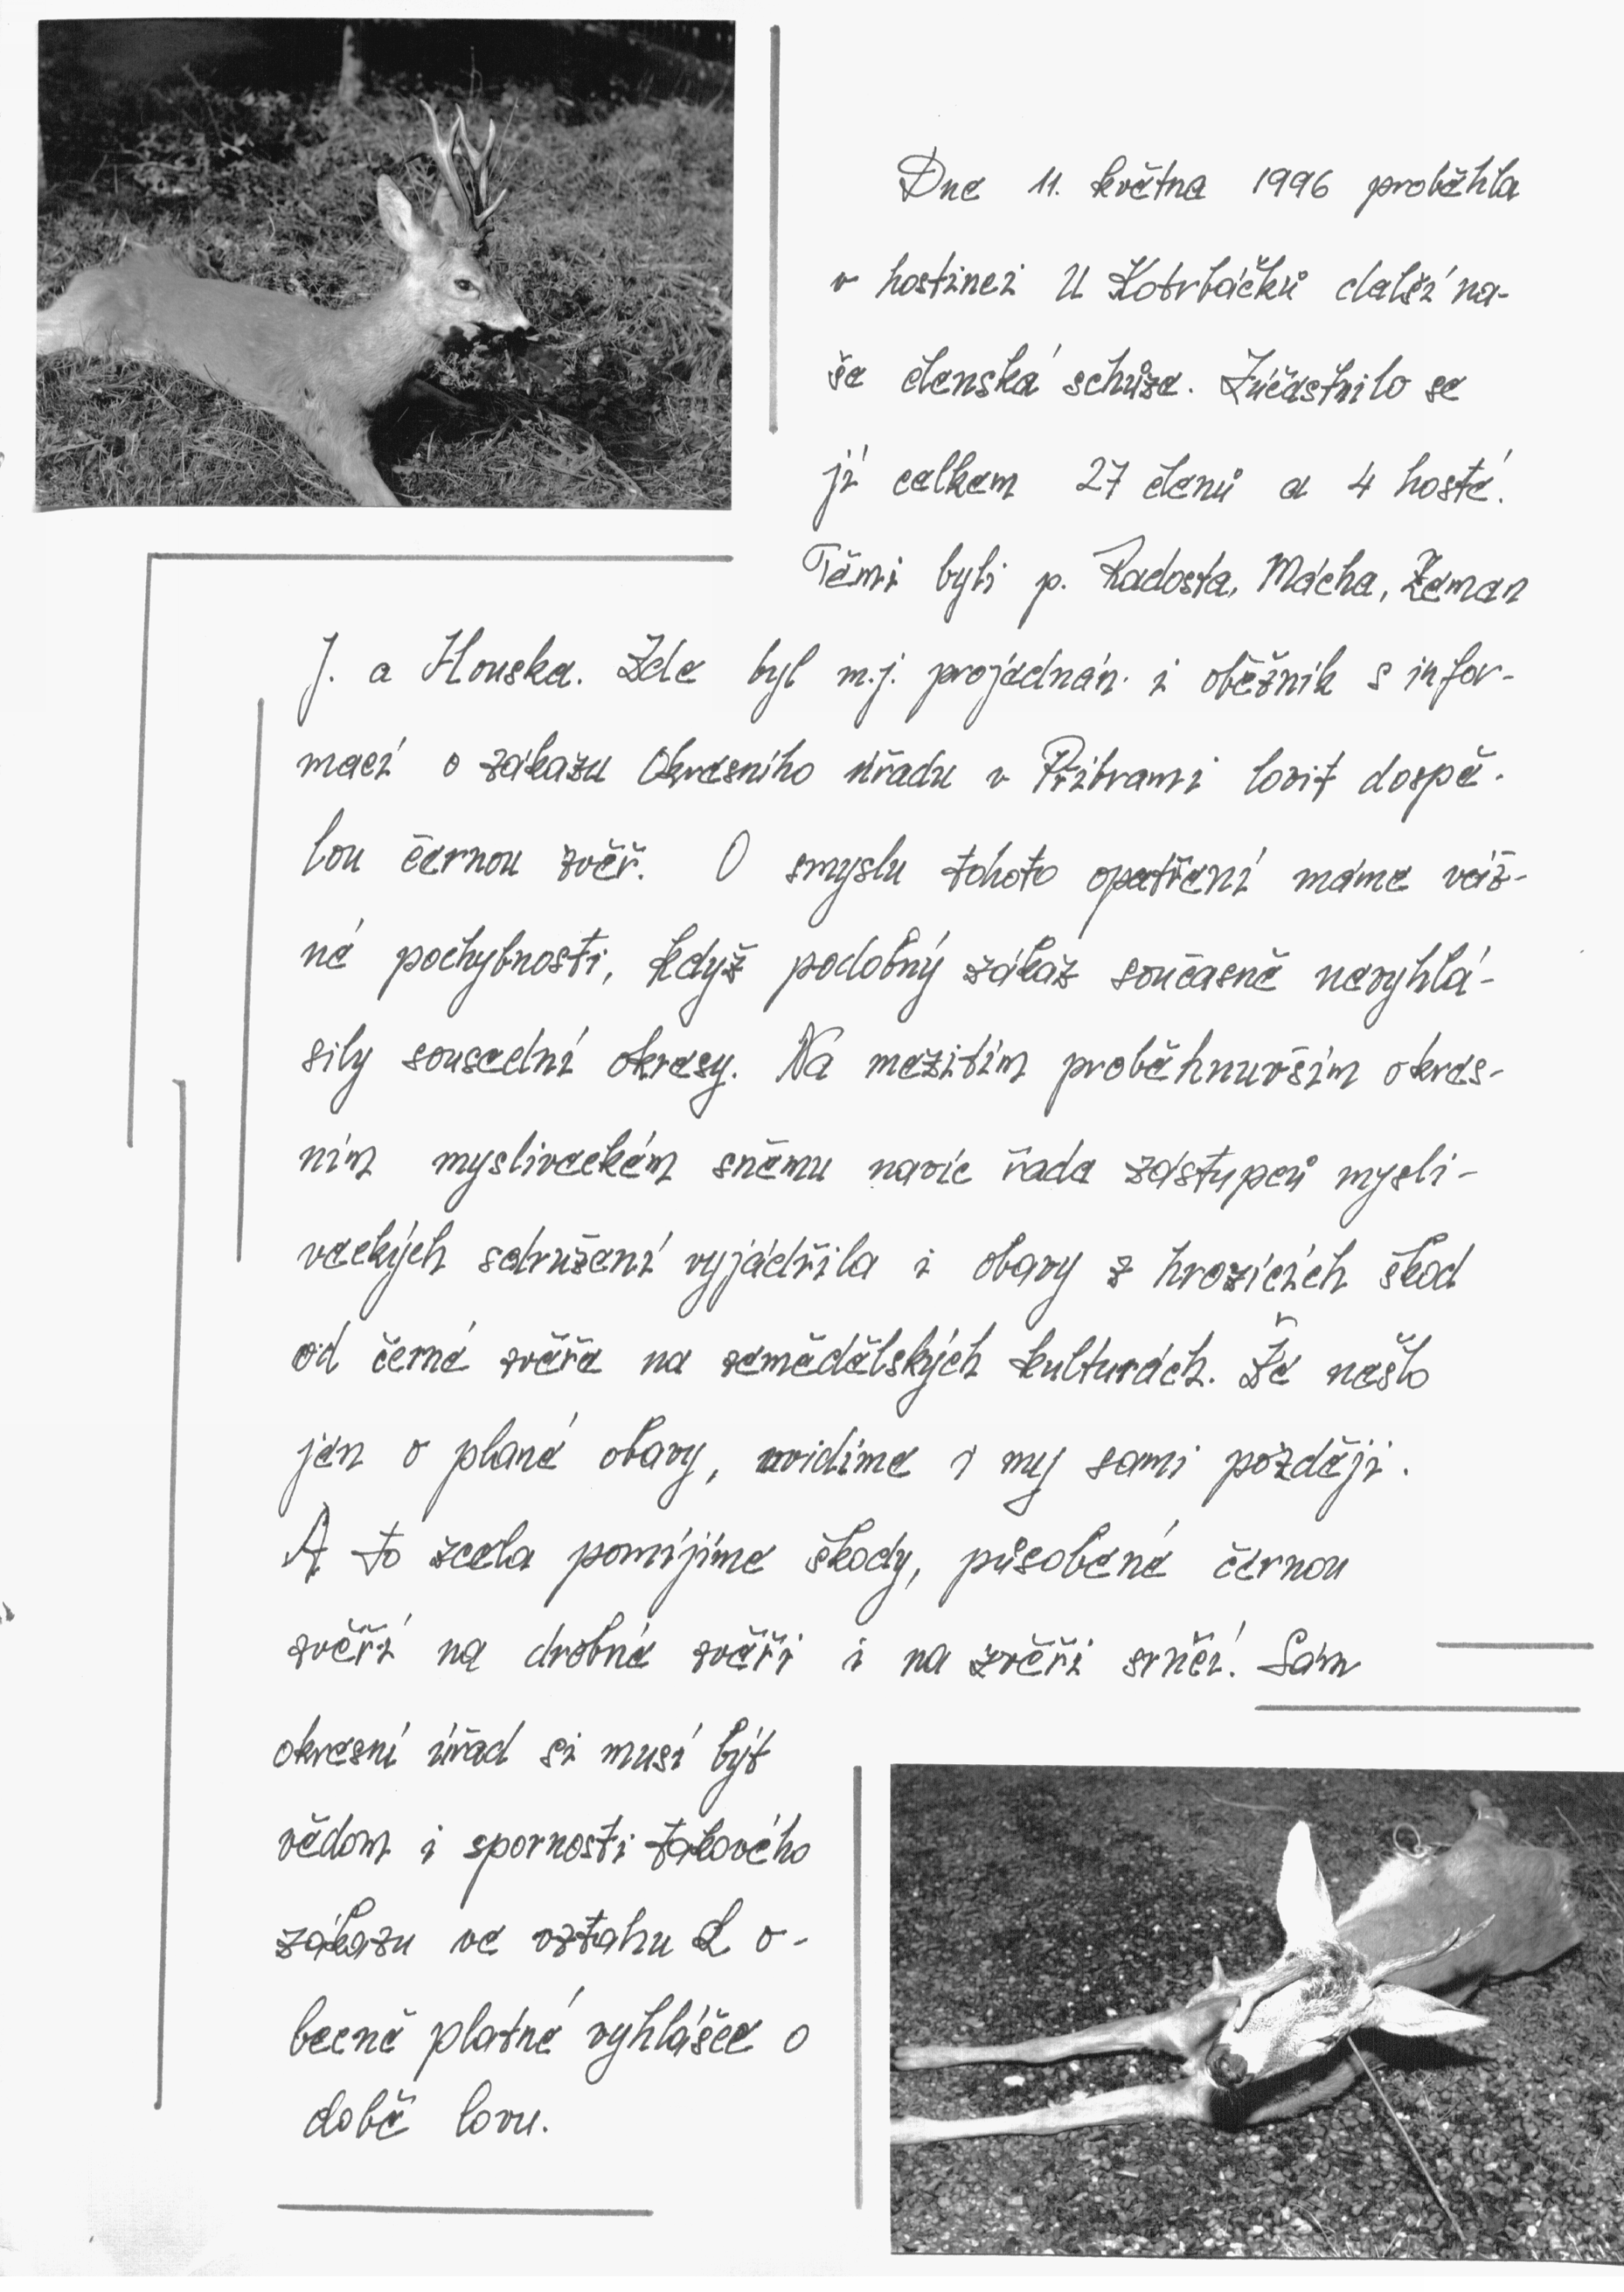 Dne 11. května 1996 proběhla
v hostinci U Kotrbáčků další na-
še členská schůze. Zúčastnilo se
jí celkem 27 členů a 4 hosté.
Těmi byli p. Radosta, Mácha, Zeman
J. a Houska. Zde byl m.j. projednán i oběžník s infor-
mací o zákazu Okresního úřadu v Příbrami lovit dospě-
lou černou zvěř. O smyslu tohoto opatření máme váž-
né pochybnosti, když podobný zákaz současně nevyhlá-
sily sousední okresy. Na mezitím proběhnuvším okres-
ním mysliveckém sněmu navíc řada zástupců mysli-
veckých sdružení vyjádřila i obavy z hrozících škod
od černé zvěře na zemědělských kulturách. Že nešlo
jen o plané obavy, uvidíme i my sami později.
A to zcela pomíjíme škody, působené černou
zvěří na drobné zvěři i na zvěři srnčí! Sám
okresní úřad si musí být
vědom i spornosti takového
zákazu ve vztahu k o-
becně platné vyhlášce o
době lovu.